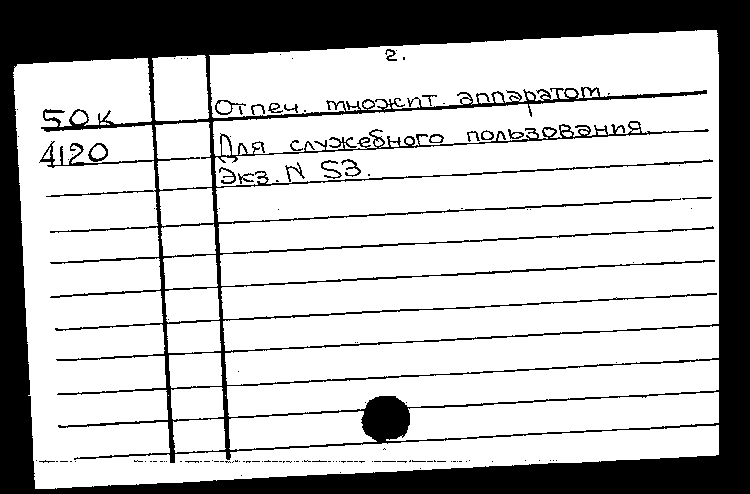 2.
50к Отпеч. множит. аппаратом.
4120 Для служебного пользования.
Экз. N 53.